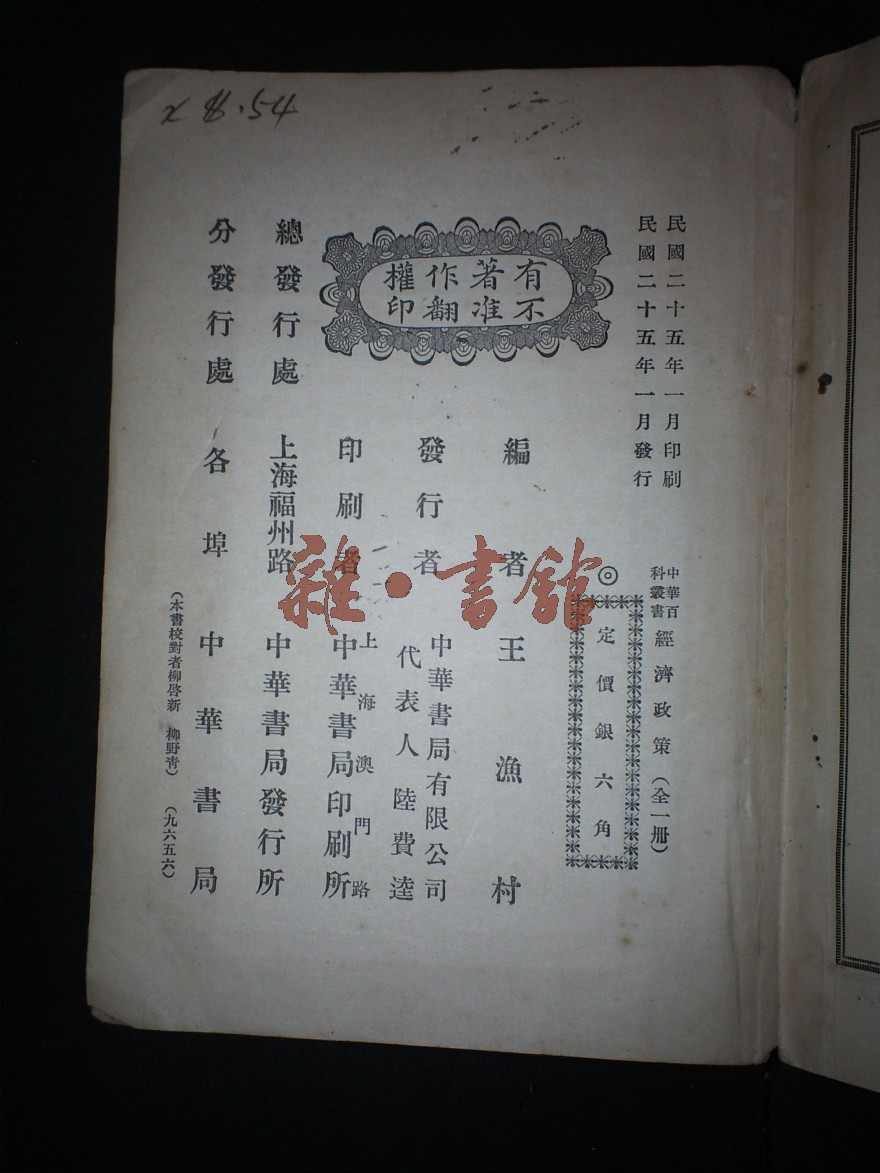 民國二十五年一月印刷
民國二十五年一月發行
中華百科叢書
經濟政策(全一册)
◎定價銀六角
有著作權
不准翻印
編者 王漁村
發行者 中華書局有限公司
代表人 陸費逵
印刷者 上海澳門路
中華書局印刷所
總發行處 上海福州路 中華書局發行所
分發行處 各埠 中華書局
(本書校對者柳啓新 柳野靑)(九六五六)
雜·書館